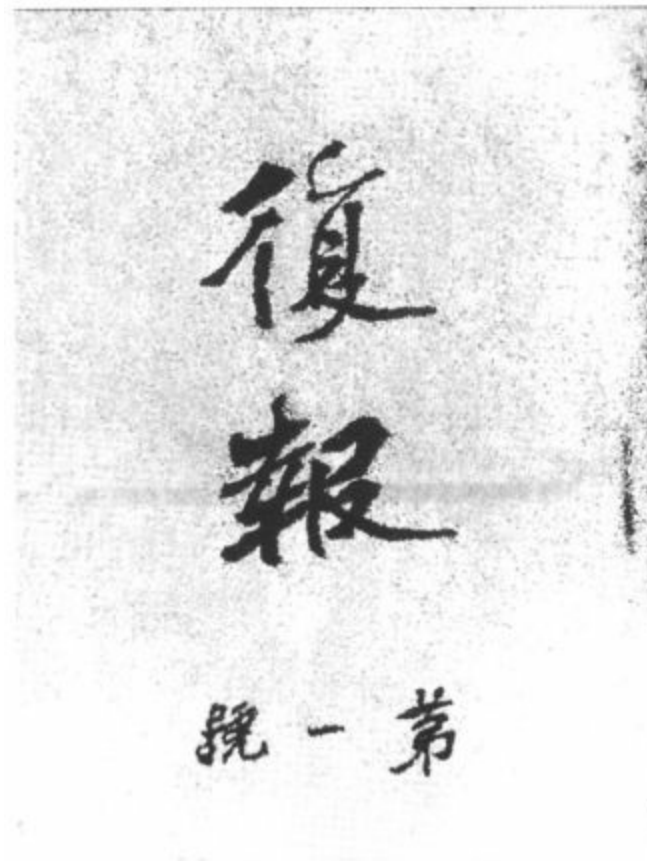 復報
第一號